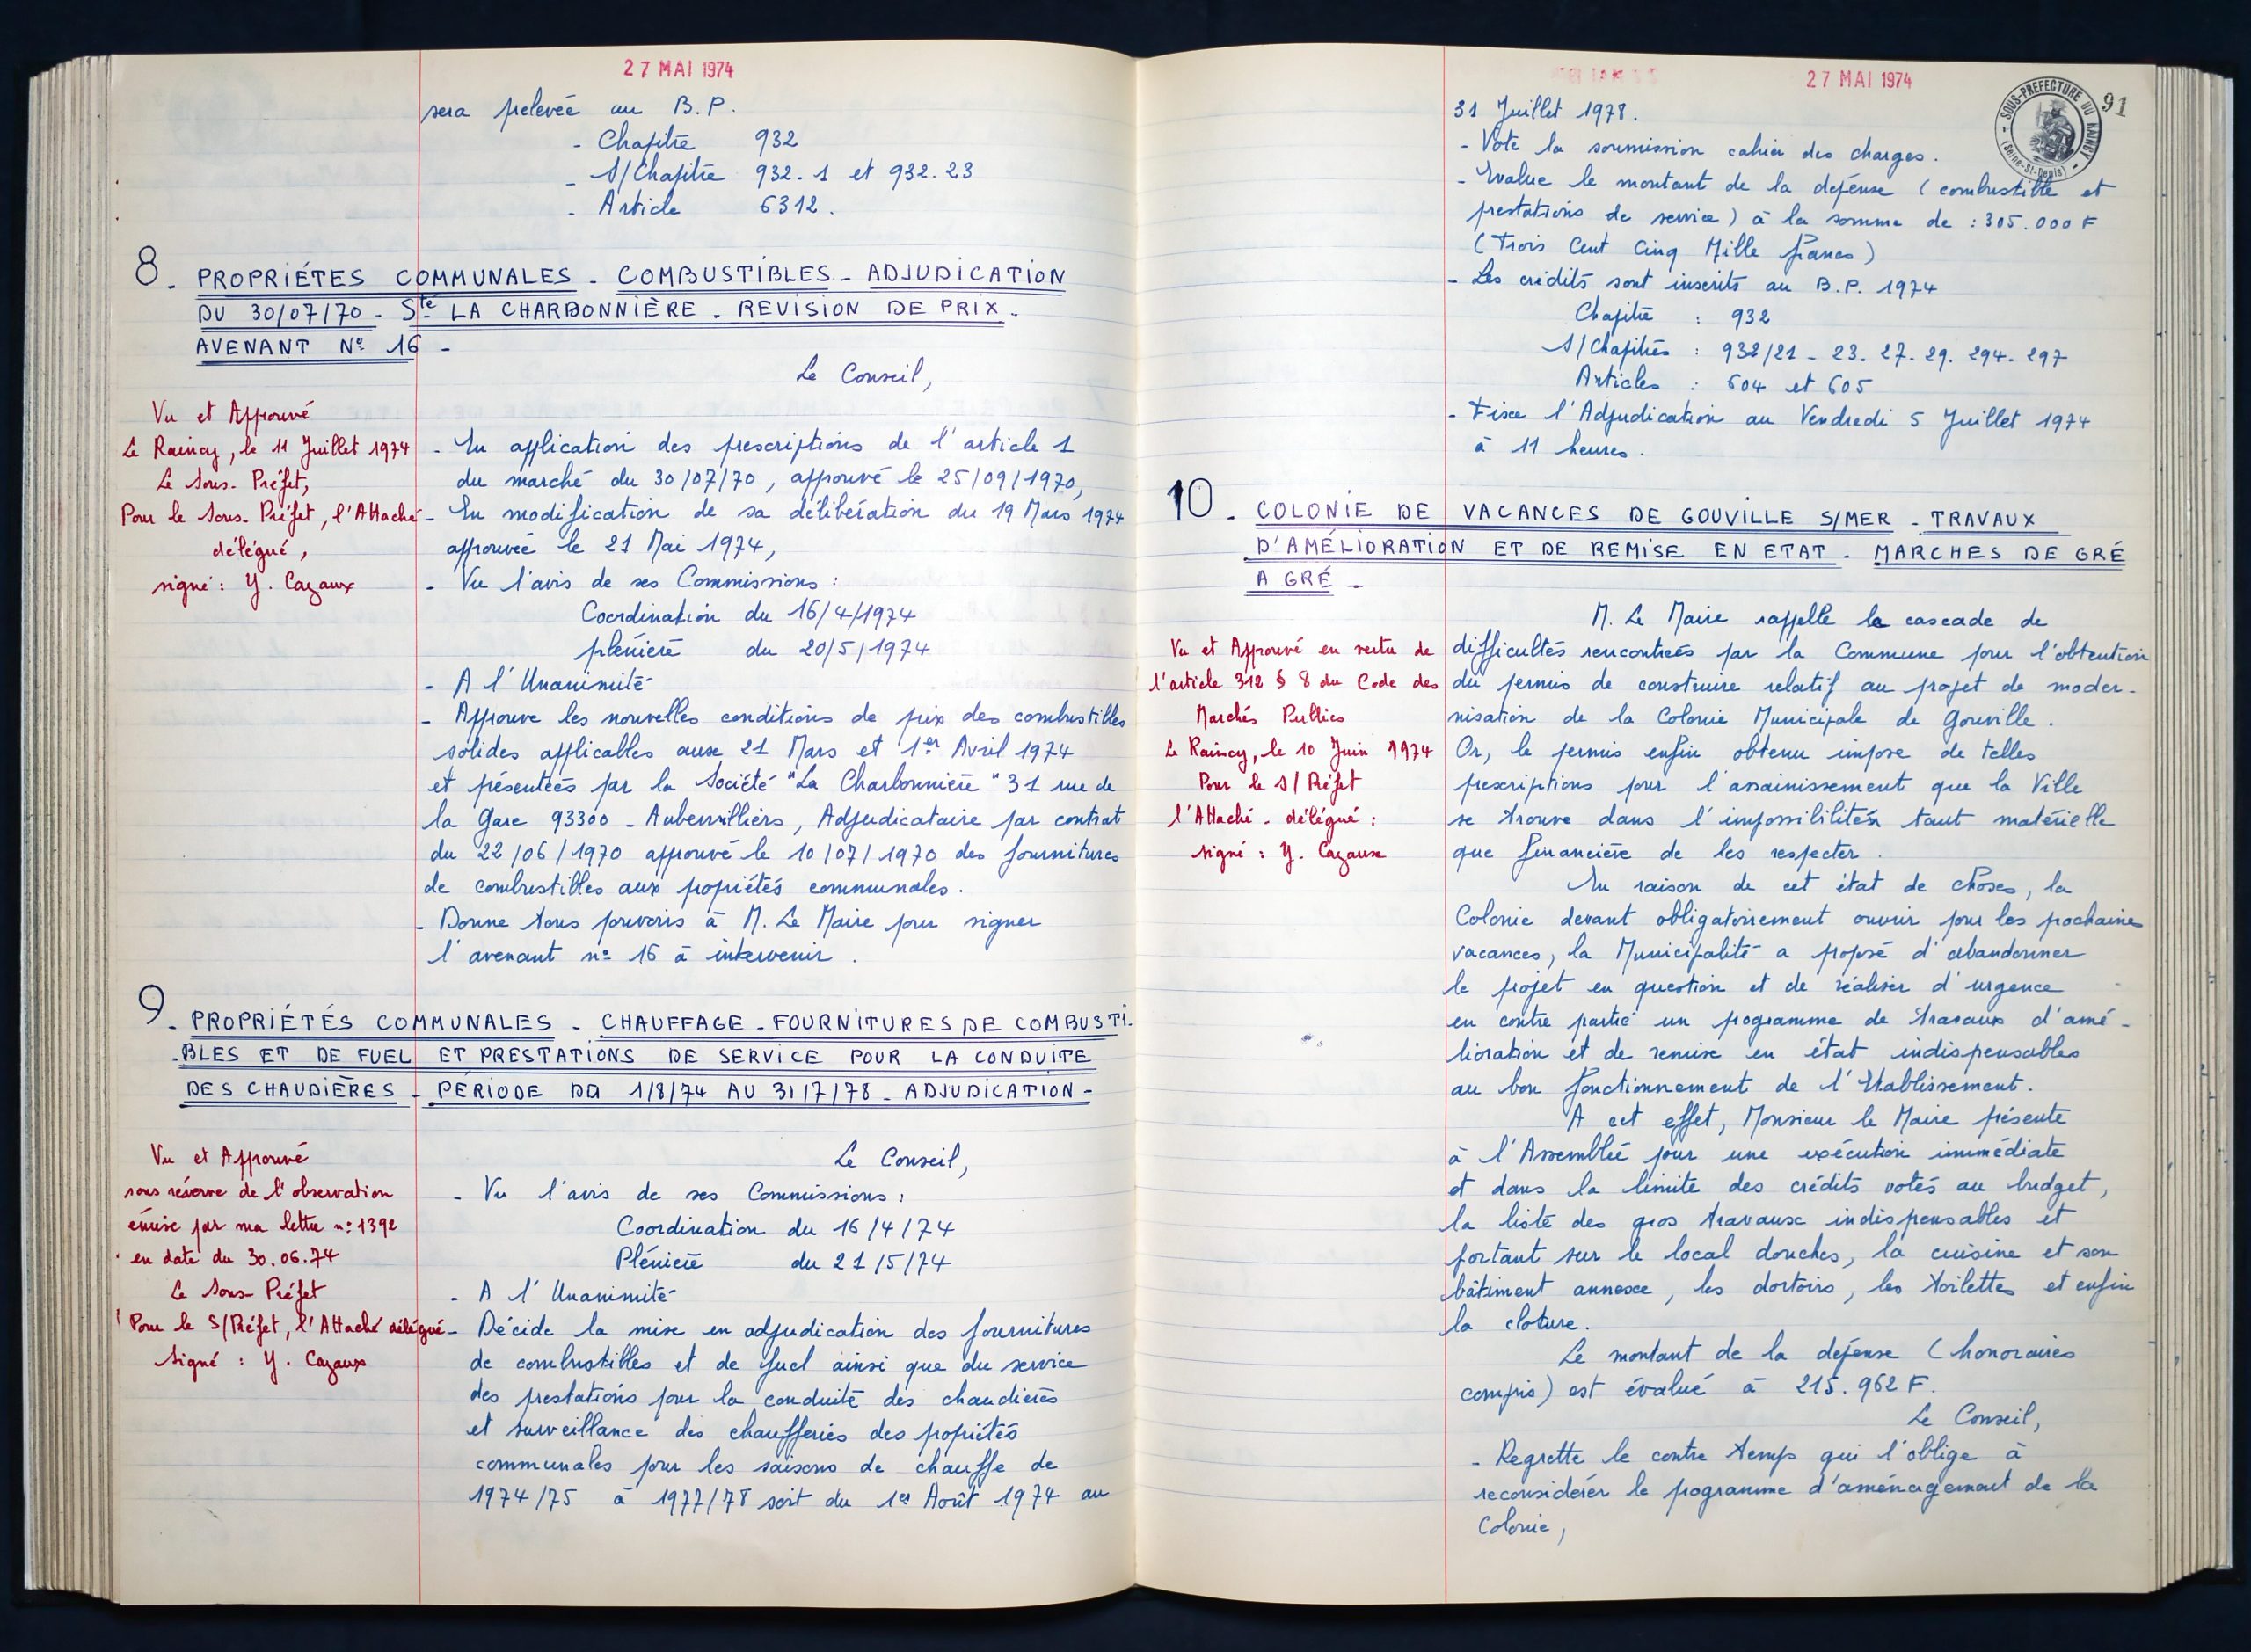 27 MAI 1974
sera prelevée au B.P.
- Chapitre 932
- S/Chapitre 932.1 et 932.23
- Article 6312.
8. PROPRIÉTES COMMUNALES - COMBUSTIBLES - ADJUDICATION
DU 30/07/70 - Sté LA CHARBONNIÈRE - REVISION DE PRIX -
AVENANT N° 16 -
Le Conseil,
Vu et Approuvé
Le Raincy, le 11 Juillet 1974
Le Sous-Préfet,
Pour le Sous-Préfet, l'Attaché
délégué,
signé : Y. Cazaux
- En application des prescriptions de l'article 1
du marché du 30/07/70, approuvé le 25/09/1970,
- En modification de sa délibération du 19 Mars 1974
approuvée le 21 Mai 1974,
- Vu l'avis de ses Commissions :
Coordination du 16/4/1974
plénière du 20/5/1974
- A l'Unanimité
- Approuve les nouvelles conditions de prix des combustibles
solides applicables aux 21 Mars et 1er Avril 1974
et présentées par la Société "La Charbonnière" 31 rue de
la Gare 93300 - Aubervilliers, Adjudicataire par contrat
du 22/06/1970 approuvé le 10/07/1970 des fournitures
de combustibles aux propiétés communales.
- Donne tous pouvoirs à M. Le Maire pour signer
l'avenant n° 16 à intervenir.
9. PROPRIÉTÉS COMMUNALES - CHAUFFAGE - FOURNITURES DE COMBUSTI-
-BLES ET DE FUEL ET PRESTATIONS DE SERVICE POUR LA CONDUITE
DES CHAUDIÈRES - PÉRIODE DU 1/8/74 AU 31/7/78 - ADJUDICATION -
Vu et Approuvé
sous réserve de l'observation
émise par ma lettre n° 1392
en date du 30.06.74
Le Sous-Préfet
Pour le S/Préfet, l'Attaché délégué
Signé : Y. Cazaux
Le Conseil,
- Vu l'avis de ses Commissions :
Coordination du 16/4/74
Plénière du 21/5/74
- A l'Unanimité
- Décide la mise en adjudication des fournitures
de combustibles et de fuel ainsi que du service
des prestations pour la conduite des chaudières
et surveillance des chaufferies des propiétés
communales pour les saisons de chauffe de
1974/75 à 1977/78 soit du 1er Août 1974 au
27 MAI 1974
SOUS-PREFECTURE DU RAINCY
(Seine-St-Denis)
91
31 Juillet 1978.
- Vote la soumission cahier des charges.
- Evalue le montant de la dépense (combustible et
prestations de service) à la somme de : 305.000 F
(Trois Cent Cinq Mille francs)
- Les crédits sont inscrits au B.P. 1974
Chapitre : 932
S/Chapitres : 932/21 - 23. 27. 29. 294. 297
Articles : 604 et 605
- Fixe l'Adjudication au Vendredi 5 Juillet 1974
à 11 heures.
10. COLONIE DE VACANCES DE GOUVILLE S/MER - TRAVAUX
D'AMÉLIORATION ET DE REMISE EN ETAT - MARCHES DE GRÉ
A GRÉ -
Vu et Approuvé en vertu de
l'article 312 § 8 du Code des
Marchés Publics
Le Raincy, le 10 Juin 1974
Pour le S/Préfet
l'Attaché - délégué :
signé : Y. Cazaux
M. Le Maire rappelle la cascade de
difficultés rencontrées par la Commune pour l'obtention
du permis de construire relatif au projet de moder-
nisation de la Colonie Municipale de Gouville.
Or, le permis enfin obtenu impose de telles
prescriptions pour l'assainissement que la Ville
se trouve dans l'impossibilité tant matérielle
que financière de les respecter.
En raison de cet état de choses, la
Colonie devant obligatoirement ouvrir pour les prochaine
vacances, la Municipalité a proposé d'abandonner
le projet en question et de réaliser d'urgence
en contre partie un programme de travaux d'amé-
lioration et de remise en état indispensables
au bon fonctionnement de l'Etablissement.
A cet effet, Monsieur le Maire présente
à l'Assemblée pour une exécution immédiate
et dans la limite des crédits votés au budget,
la liste des gros travaux indispensables et
portant sur le local douches, la cuisine et son
bâtiment annexe, les dortoirs, les toilettes et enfin
la cloture.
Le montant de la dépense (honoraires
compris) est évalué à 215.962 F.
Le Conseil,
- Regrette le contre temps qui l'oblige à
reconsidérer le programme d'aménagement de la
Colonie,